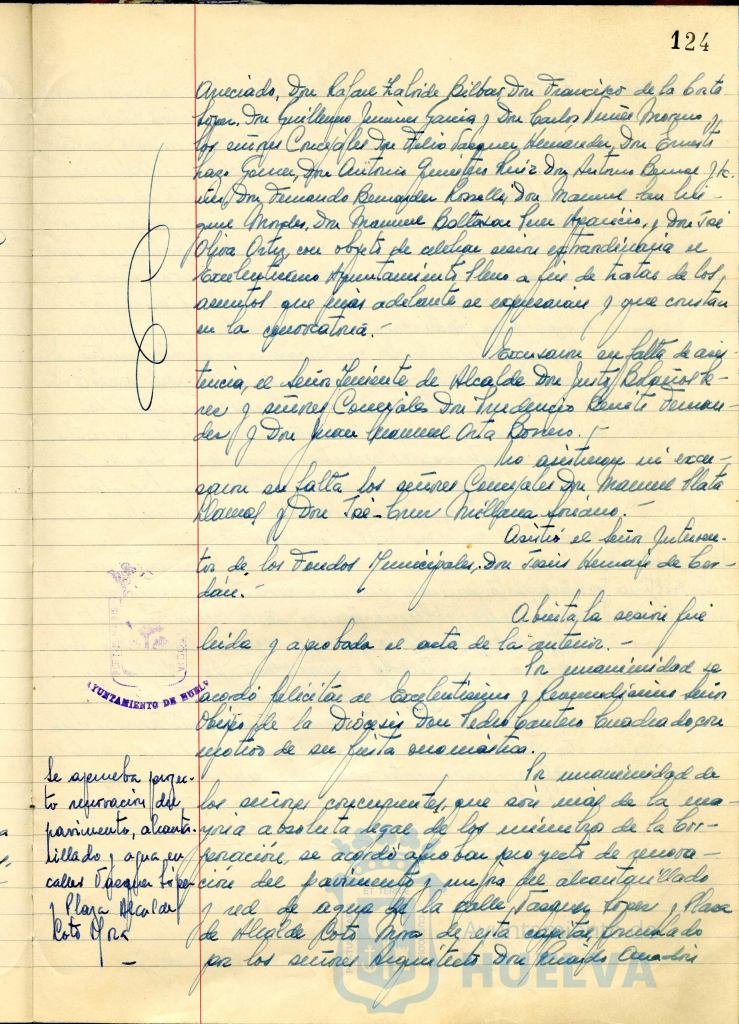 124
Don Rafael Bilbao, Don Francisco de la Corte
López, Don Guillermo Jiménez García y Don Carlos Moreno y
los señores Concejales Don Vázquez Hernández, Don
Gómez, Don Antonio Ruiz, Don Antonio
Don Fernando Bermúdez Don Manuel
Don Manuel Baltasar Aparicio, y Don José
Oliva Ortiz, con objeto de celebrar sesión extraordinaria el
Excelentísimo Ayuntamiento Pleno a fin de tratar de los
asuntos que más adelante se expresarán y que constan
en la convocatoria.-
Excusaron su falta de asis-
tencia, el Señor Teniente de Alcalde Don Justo Bolaños
y señores Concejales Don Prudencio Benito Fernán-
dez y Don Juan Manuel Orta Borrero.-
No asistieron ni excu-
saron su falta los señores Concejales Don Manuel Plata
y Don José-Cruz Soriano.-
Asistió el Señor Interven-
tor de los Fondos Municipales, Don Jesús de Cer-
dán.-
Abierta la sesión fué
leida y aprobada el acta de la anterior.-
Por unanimidad se
acordó felicitar al Excelentísimo y Reverendísimo Señor
Obispo de la Diócesis Don Pedro Cantero Cuadrado, con
motivo de su fiesta onomástica.
Por unanimidad de
los señores concurrentes, que son más de la ma-
yoría absoluta legal de los miembros de la Cor-
poración, se acordó aprobar proyecto de renova-
ción del pavimento y mejora del alcantarillado
y red de agua de la calle Vázquez López y Plaza
de Alcalde Coto Mora de esta capital formulado
por los señores Arquitecto Don Ricardo Anadón
Se aprueba proyec-
to renovación del
pavimento, alcanta-
rillado y agua en
calles Vázquez López
y Plaza Alcalde
Coto Mora
AYUNTAMIENTO DE HUELV
HUELVA